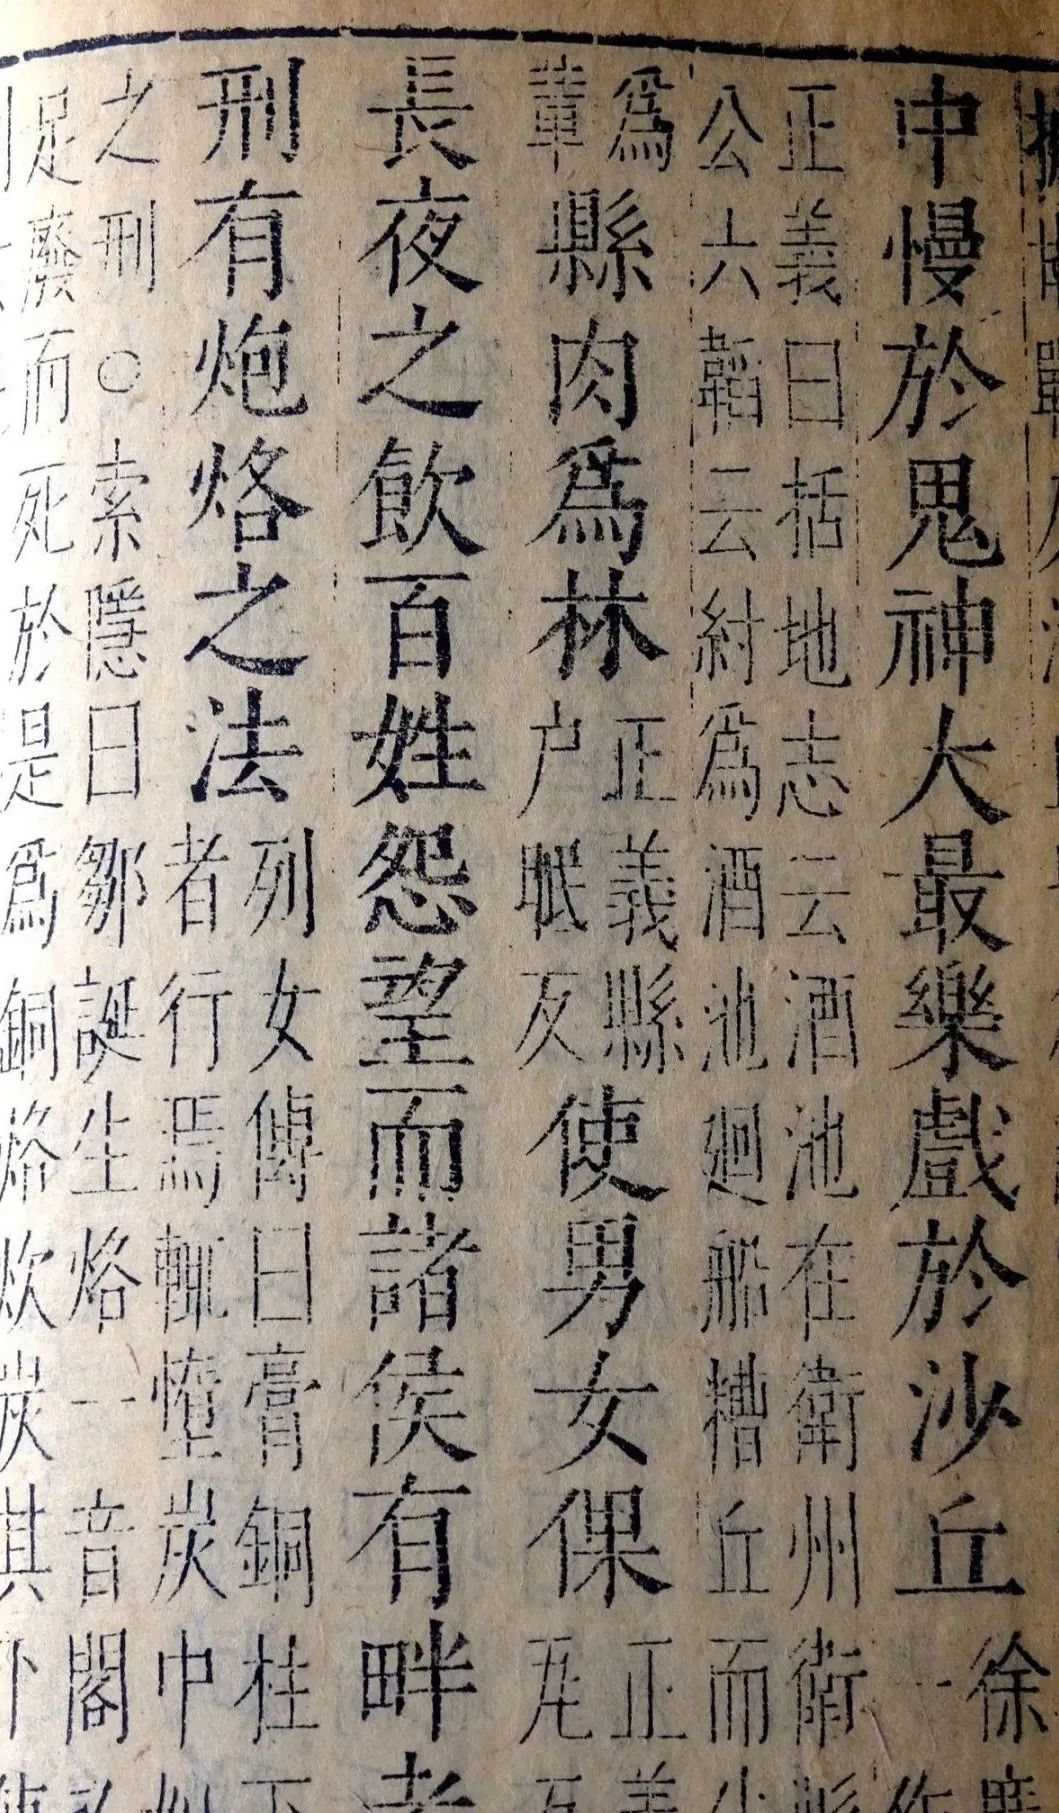 中慢於鬼神大最樂戲於沙丘
徐廣
一作
正義曰括地志云酒池在衛州衛
公六韜云紂爲酒池廻船糟丘而牛
爲
輩
縣肉爲林
正義縣
户眠反
使男女倮
正義
瓦反
長夜之飲百姓怨望而諸侯有畔者
刑有炮烙之法
列女傳曰膏銅柱下
者行焉輒墮炭中
之刑○索隱曰鄒誕生烙一音閣
足廢而死於是爲銅烙炊炭其下使